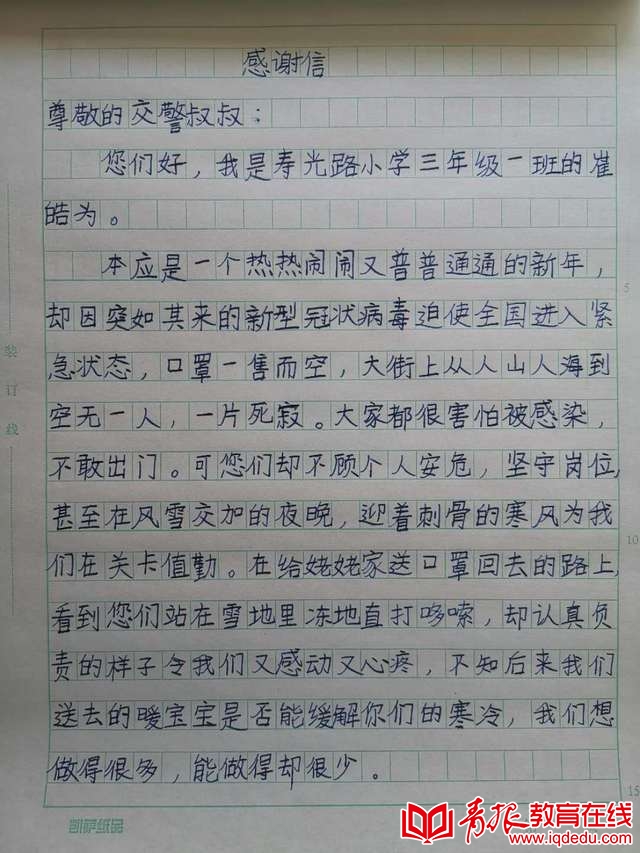 感谢信
尊敬的交警叔叔：
您们好，我是寿光路小学三年级一班的崔
皓为。
本应是一个热热闹闹又普普通通的新年，
却因突如其来的新型冠状病毒迫使全国进入紧
5
急状态，口罩一售而空，大街上从人山人海到
空无一人，一片死寂。大家都很害怕被感染，
不敢出门。可您们却不顾个人安危，坚守岗位，
甚至在风雪交加的夜晚，迎着刺骨的寒风为我
10
们在关卡值勤。在给姥姥家送口罩回去的路上，
看到您们站在雪地里冻地直打哆嗦，却认真负
责的样子令我们又感动又心疼，不知后来我们
送去的暖宝宝是否能缓解你们的寒冷，我们想
做得很多，能做得却很少。
15
装订线
凯萨纸品
青报教育在线
www.iqdedu.com